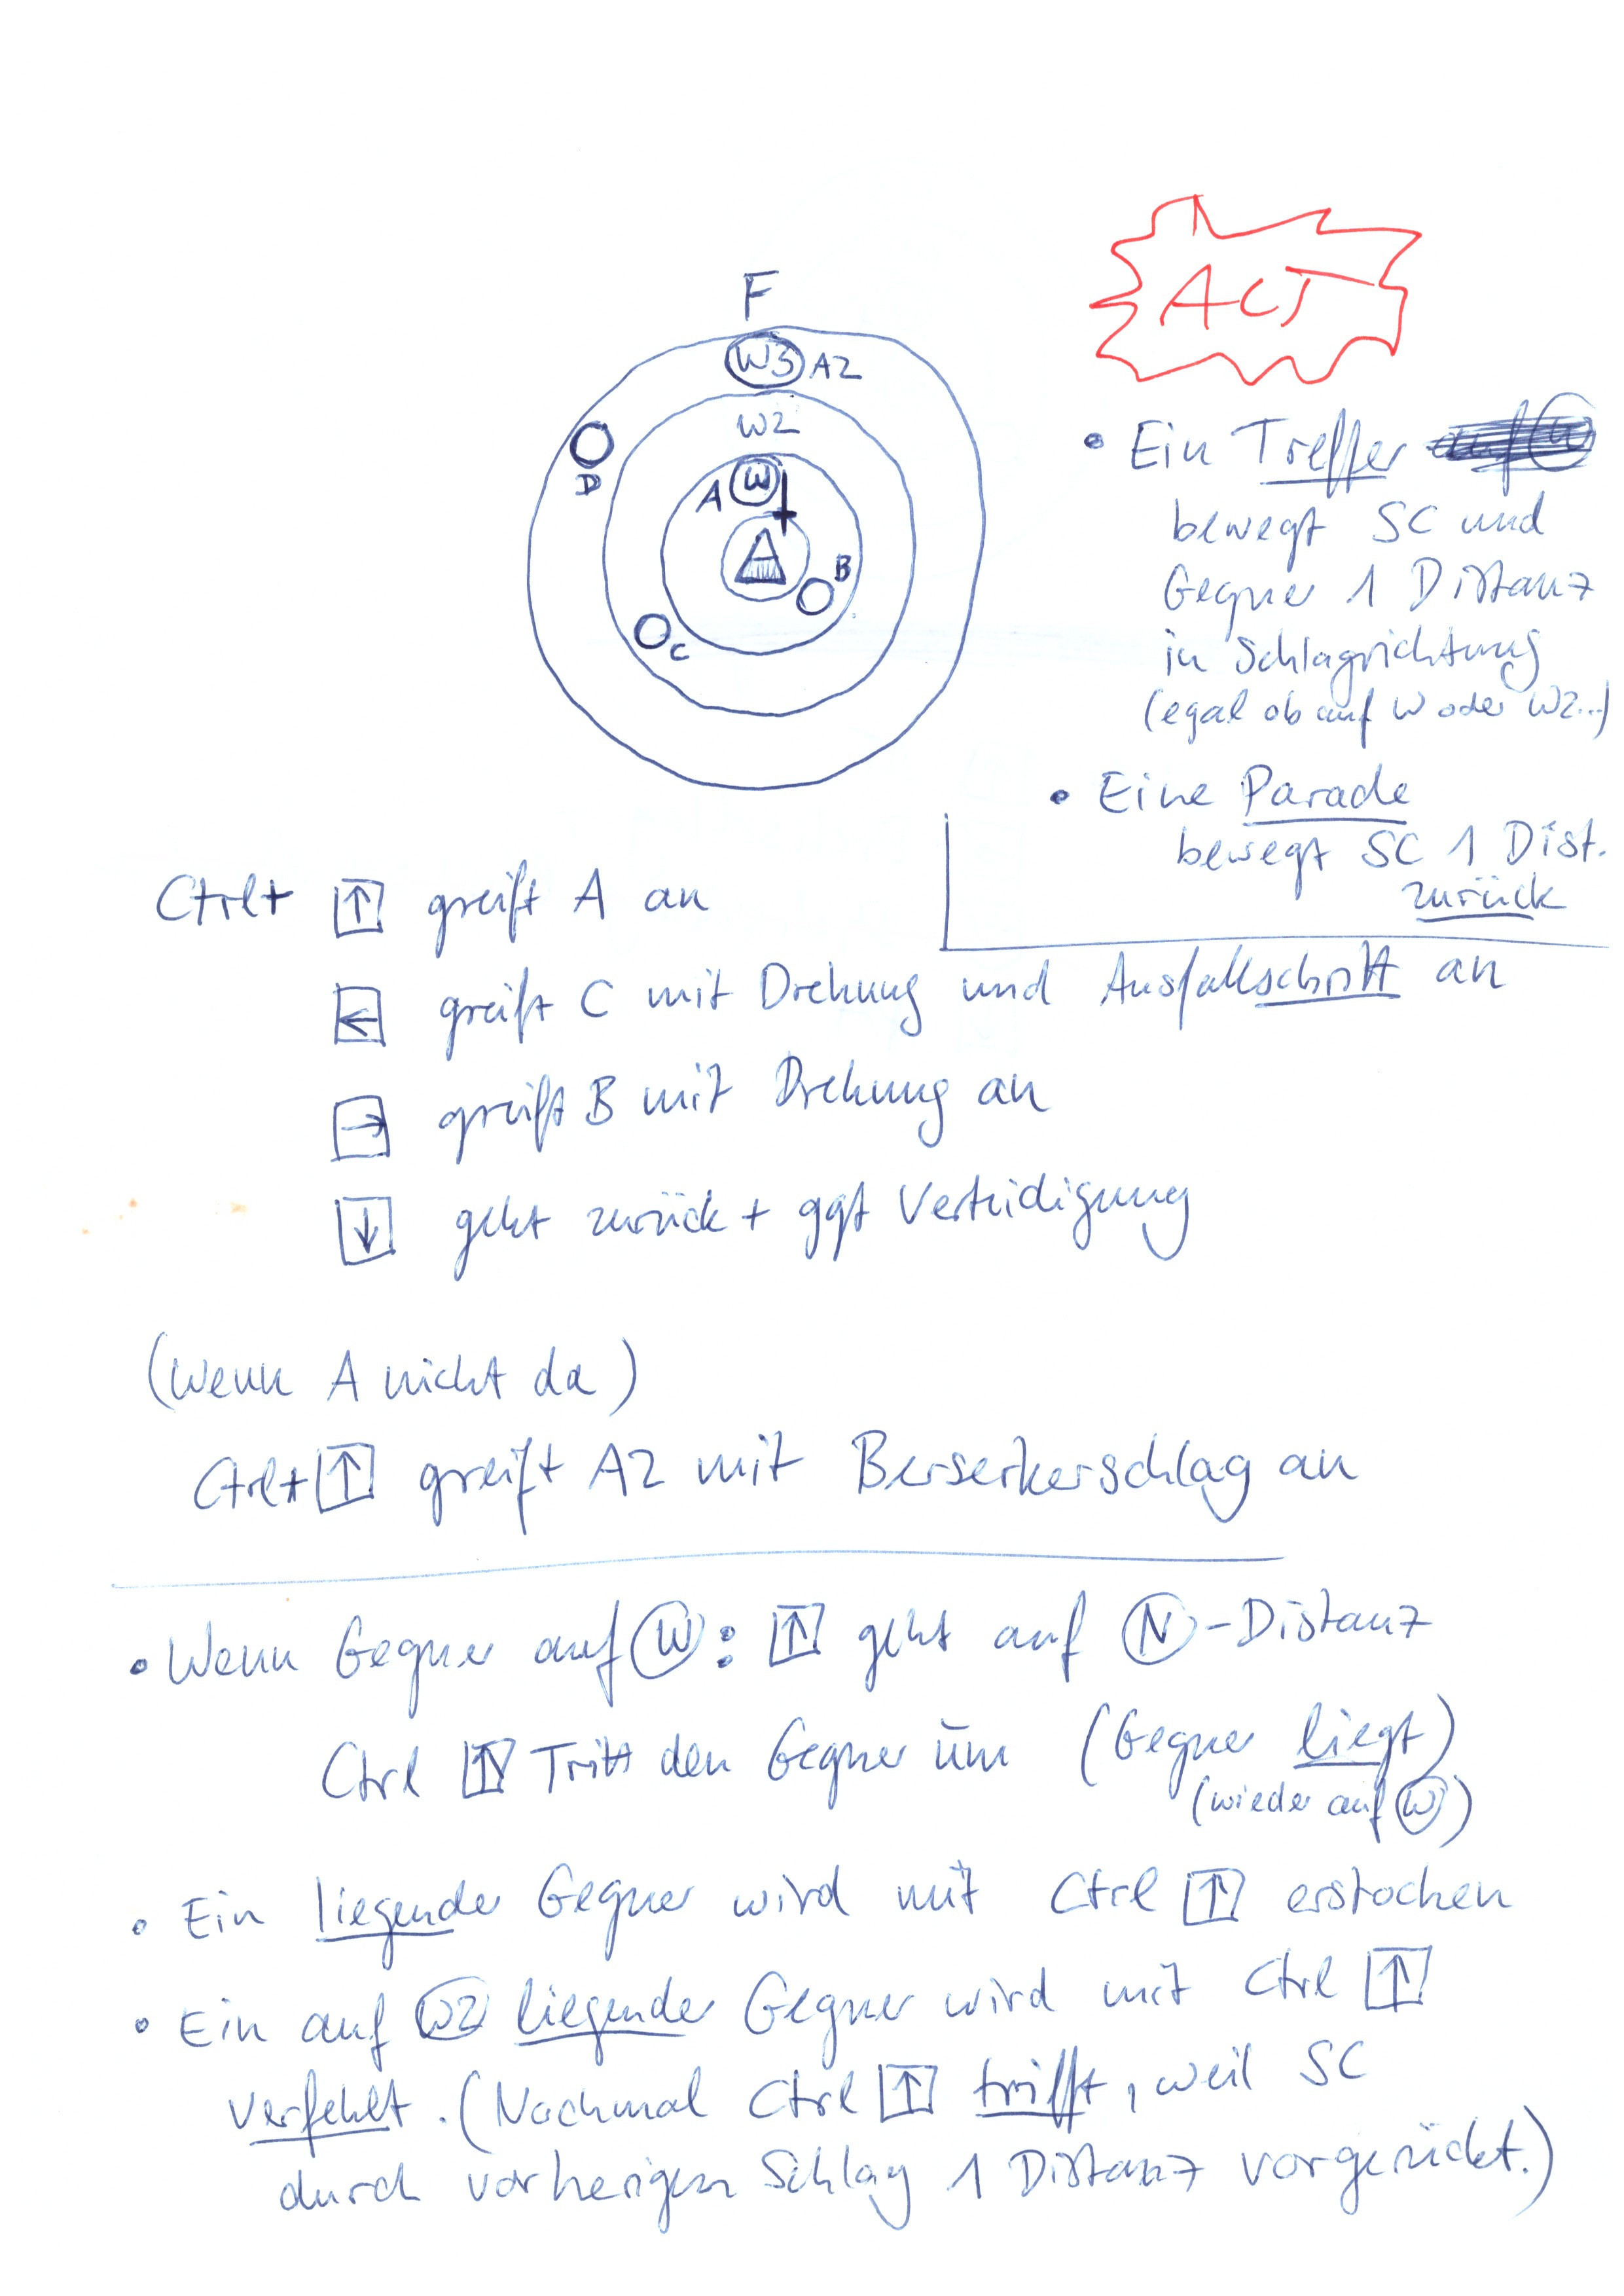 F
W3 A2
W2
D
A W
B
C
ACT
• Ein Treffer
bewegt SC und
Gegner 1 Distanz
in Schlagrichtung
(egal ob auf W oder W2..)
• Eine Parade
bewegt SC 1 Dist.
zurück
Ctrl+ ↑ greift A an
← greift C mit Drehung und Ausfallschritt an
→ greift B mit Drehung an
↓ geht zurück + ggf Verteidigung
(Wenn A nicht da)
Ctrl+ ↑ greift A2 mit Berserkerschlag an
• Wenn Gegner auf W: ↑ geht auf N-Distanz
Ctrl ↑ Tritt den Gegner um (Gegner liegt)
(wieder auf W)
• Ein liegender Gegner wird mit Ctrl ↑ erstochen
• Ein auf W2 liegender Gegner wird mit Ctrl ↑
verfehlt. (Nochmal Ctrl ↑ trifft, weil SC
durch vorherigen Schlag 1 Distanz vorgerückt.)